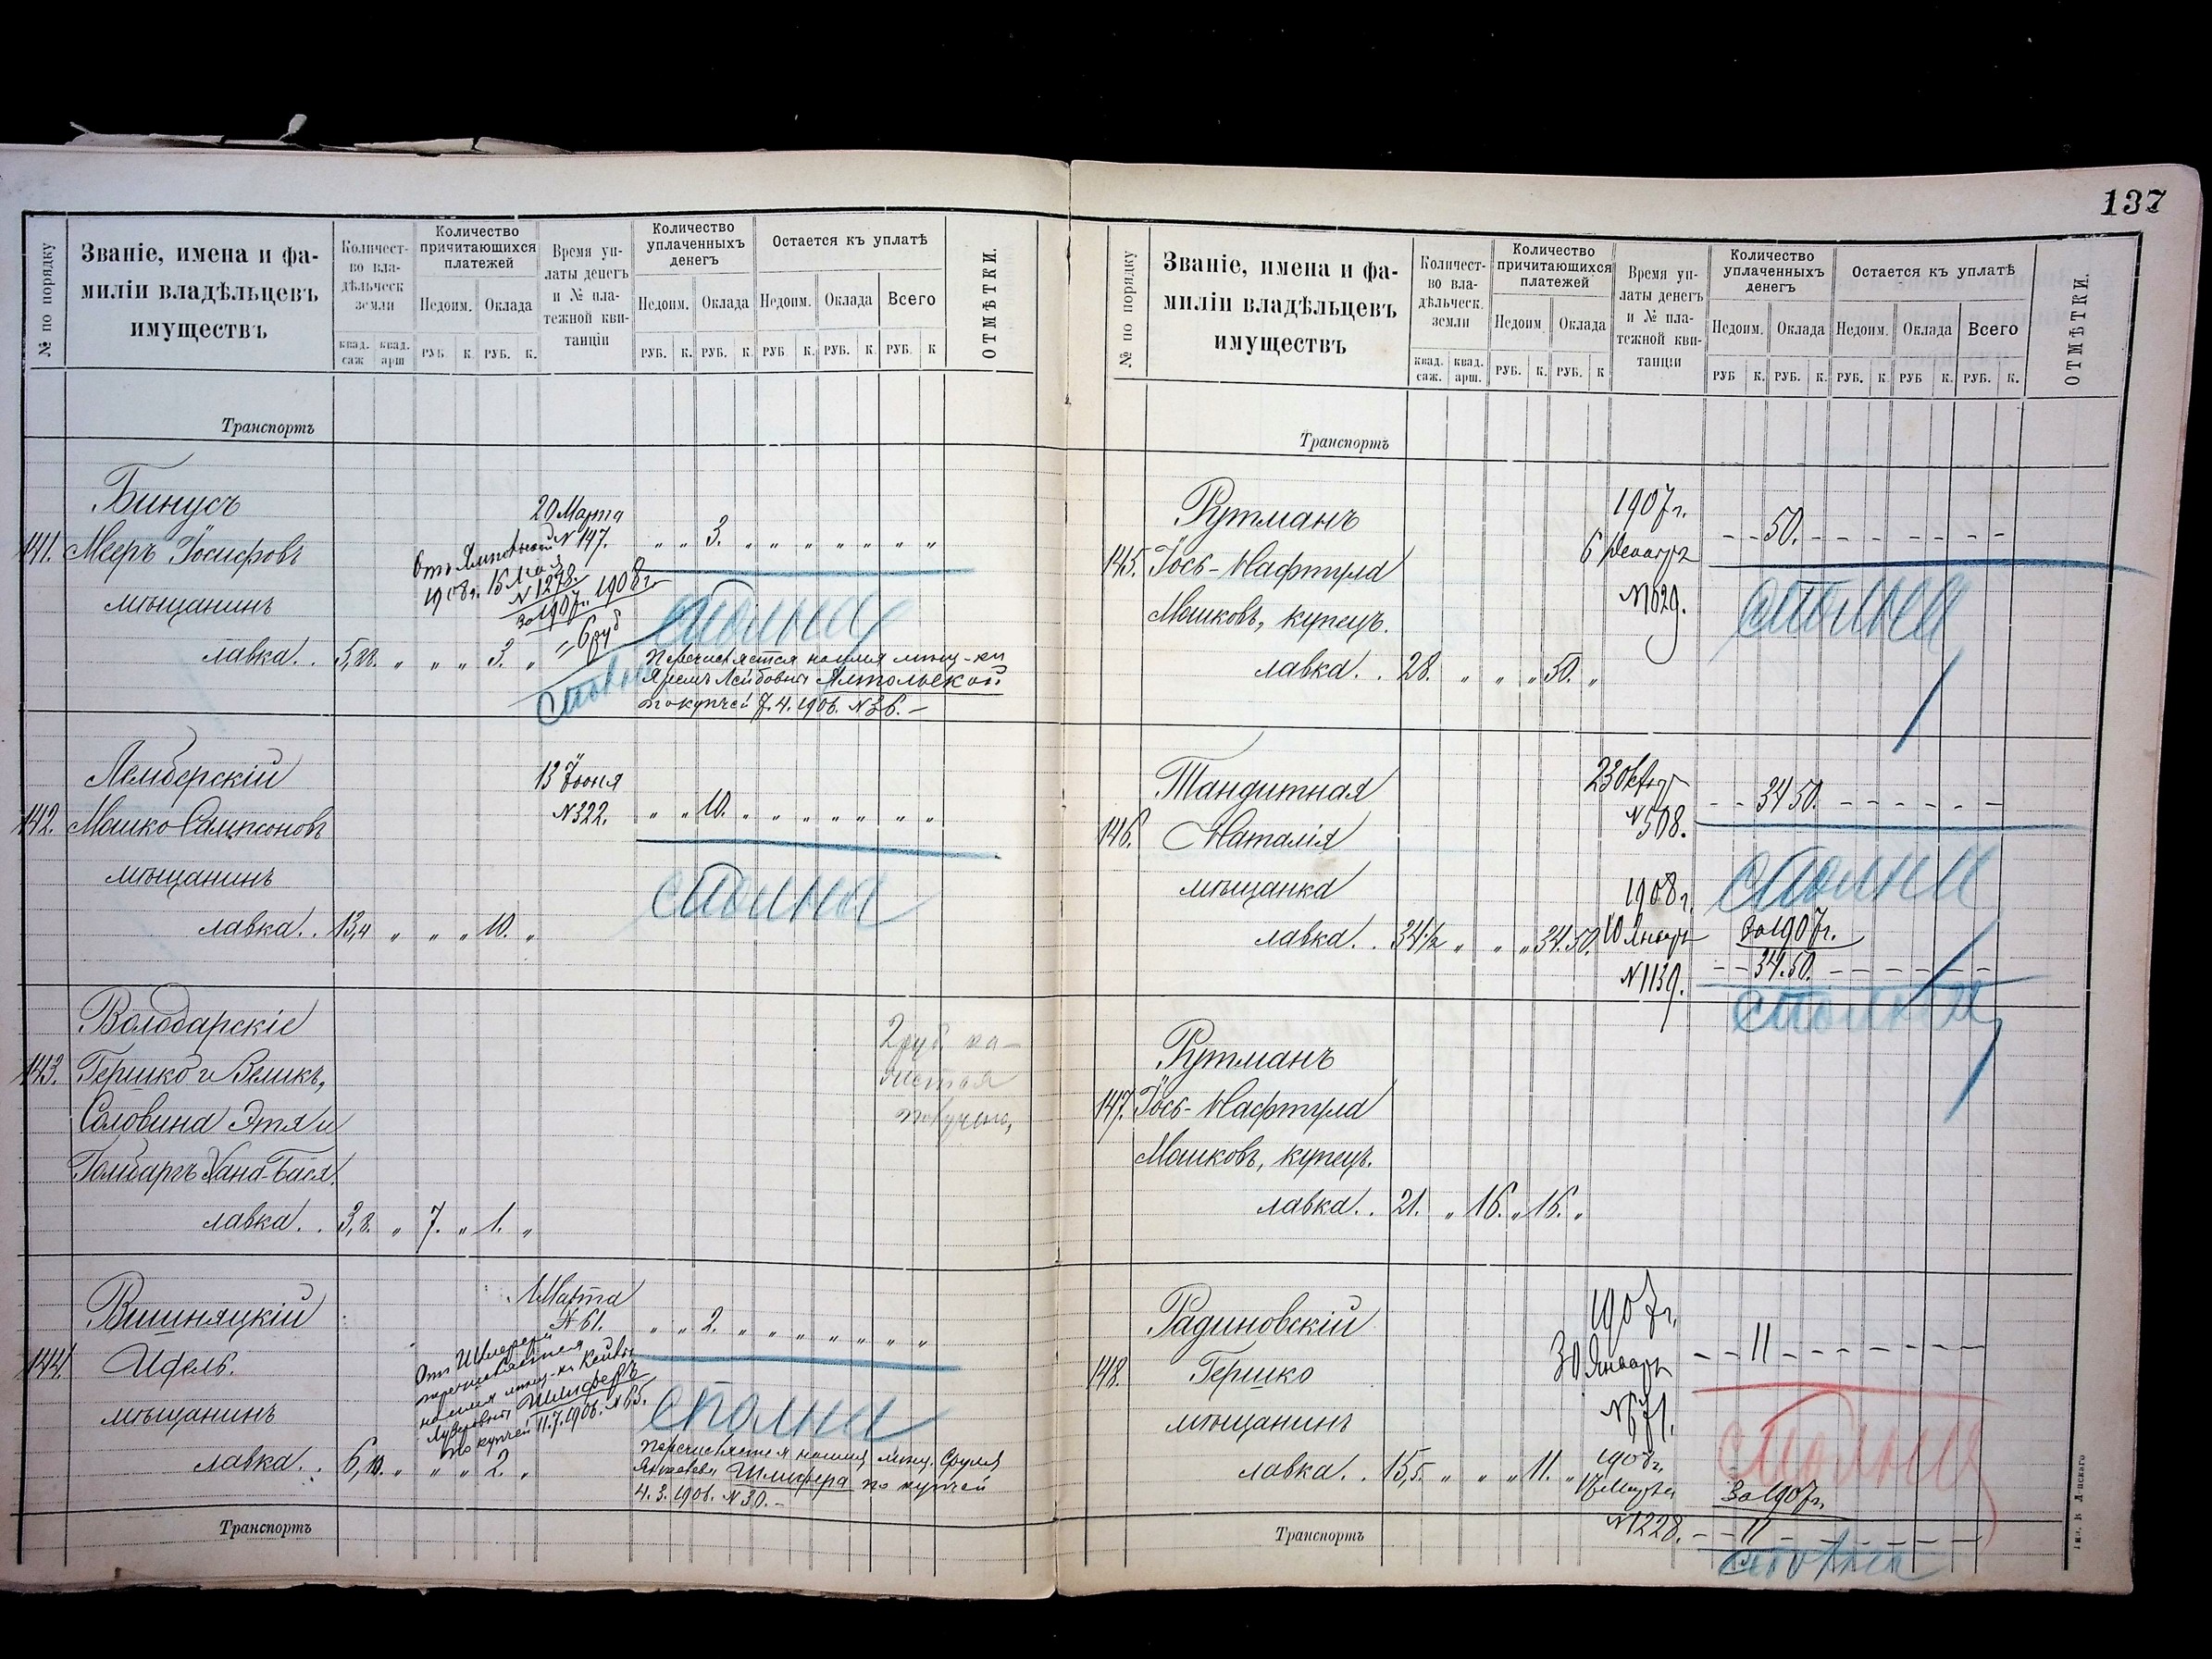 137
№ по порядку
Званіе, имена и фа-
миліи владѣльцевъ
имуществъ
Количест-
во вла-
дѣльческ
земли
квад. квад.
саж арш
Количество
причитающихся
платежей
Недоим. Оклада
РУБ. К. РУБ. К.
Время уп-
латы денегъ
и № пла-
тежной кви-
танціи
Количество
уплаченныхъ
денегъ
Недоим. Оклада
РУБ. К. РУБ. К.
Остается къ уплатѣ
Недоим. Оклада Всего
РУБ К. РУБ. К. РУБ. К
ОТМѢТКИ.
Транспортъ
Бинусъ
141. Мееръ Іосифовъ
мѣщанинъ
лавка. . 5,88. „ „ „ 3. „
20 Марта
N 147. „ „ 3. „ „ „ „ „ „ „
1908 г. 15 Мая
N 1278.
за 1907 и 1908 г.
= 6 руб
сполна
сполна
Перечисляется на имя мѣщ-ки
Ялтольской
по купчей 7.4.1906. N 36. –
Лемберскій
142. Мошко Сампсоновъ
мѣщанинъ
лавка. . 13,4 „ „ „ 10. „
13 Іюня
N 322. „ „ 10. „ „ „ „ „ „ „
сполна
Володарскіе
143. Гершко и Зеликъ,
Соловина Этя и
Голбаргъ Хана-Бася.
лавка. . 3,8. „ 7. „ 1. „
2 руб
получено,
Вишняцкій
144. Идель.
мѣщанинъ
лавка. . 6,10. „ „ „ 2. „
1 Марта
N 61. „ „ 2. „ „ „ „ „ „ „
Отъ Шлифера
перечисляется
на имя мѣщ-ки
Шлиферъ
по купчей 11.7.1906. N 65.
сполна
Перечисляется на имя мѣщ. Сруля
Янкелева Шлифера по купчей
4.3.1906. N 30. –
Транспортъ
№ по порядку
Званіе, имена и фа-
миліи владѣльцевъ
имуществъ
Количест-
во вла-
дѣльческ.
земли
квад. квад.
саж. арш.
Количество
причитающихся
платежей
Недоим Оклада
РУБ. К. РУБ. К
Время уп-
латы денегъ
и № пла-
тежной кви-
танціи
Количество
уплаченныхъ
денегъ
Недоим. Оклада
РУБ К. РУБ. К.
Остается къ уплатѣ
Недоим. Оклада Всего
РУБ. К РУБ К. РУБ. К.
ОТМѢТКИ.
Транспортъ
Рутманъ
145. Іось-Нафтула
Мошковъ, купецъ.
лавка. . 28. „ „ „ 50. „
1907 г.
6 Декабря
N 1029.
– – 50. – – – – – – –
сполна
Тандитная
146. Наталія
мѣщанка
лавка. . 34½ „ „ „ 34.50.
23 Октяб
N 508.
– – 34 50. – – – – – –
сполна
1908 г.
10 Январ
N 1139.
За 1907 г.
– – 34.50. – – – – – –
сполна
Рутманъ
147. Іось-Нафтула
Мошковъ, купецъ.
лавка. . 21. „ 16. „ 16. „
Радиновскій
148. Гершко
мѣщанинъ
лавка. . 15,5. „ „ „ 11. „
1907 г.
30 Январ
N 671.
– – 11 – – – – – – –
сполна
1908 г.
17 Марта
N 1228.
За 1907 г.
– – 11 – – – – – – –
сполна
Транспортъ